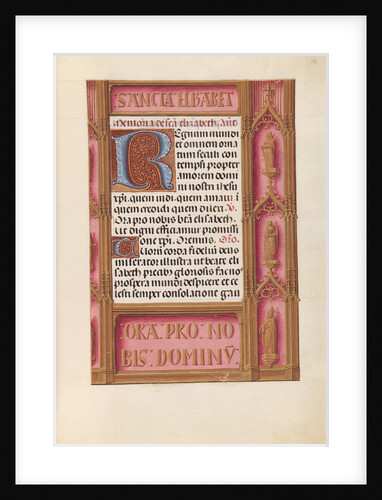 SANCTA ELISABET
Memoria de scā elizabeth. Ant̄
Regnum mundi
et omnem orna
tum seculi con
tempsi propter
amorem domi
ni nostri ihesu
xp̄i. quem vidi. quem amaui i
quem credidi quem dilexi. V̄.
Ora pro nobis bt̄a elisabeth.
Ut digni efficiamur promissi
one xp̄i. Oremus. Or̄o.
Tuorū corda fideliū deus
miserator illustra ut beate eli
sabeth precibꝰ gloriosis fac nos
prospera mundi despicere et ce
lesti semper consolatione gau
ORA: PRO: NO
BIS: DOMINV̄: